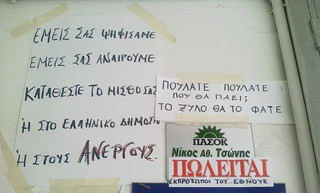 ΕΜΕΙΣ ΣΑΣ ΨΗΦΙΣΑΜΕ
ΕΜΕΙΣ ΣΑΣ ΑΝΑΙΡΟΥΜΕ
ΚΑΤΑΘΕΣΤΕ ΤΟ ΜΙΣΘΟ ΣΑΣ
Ή ΣΤΟ ΕΛΛΗΝΙΚΟ ΔΗΜΟΣΙΟ
Ή ΣΤΟΥΣ ΑΝΕΡΓΟΥΣ.
ΠΟΥΛΑΤΕ ΠΟΥΛΑΤΕ
ΠΟΥ ΘΑ ΠΑΕΙ;
ΤΟ ΞΥΛΟ ΘΑ ΤΟ ΦΑΤΕ
ΠΑΣΟΚ
Νίκος Αθ. Τσώνης
ΠΩΛΕΙΤΑΙ
ΕΚΠΡΟΣΩΠΟΙ ΤΟΥ ΕΘΝΟΥΣ